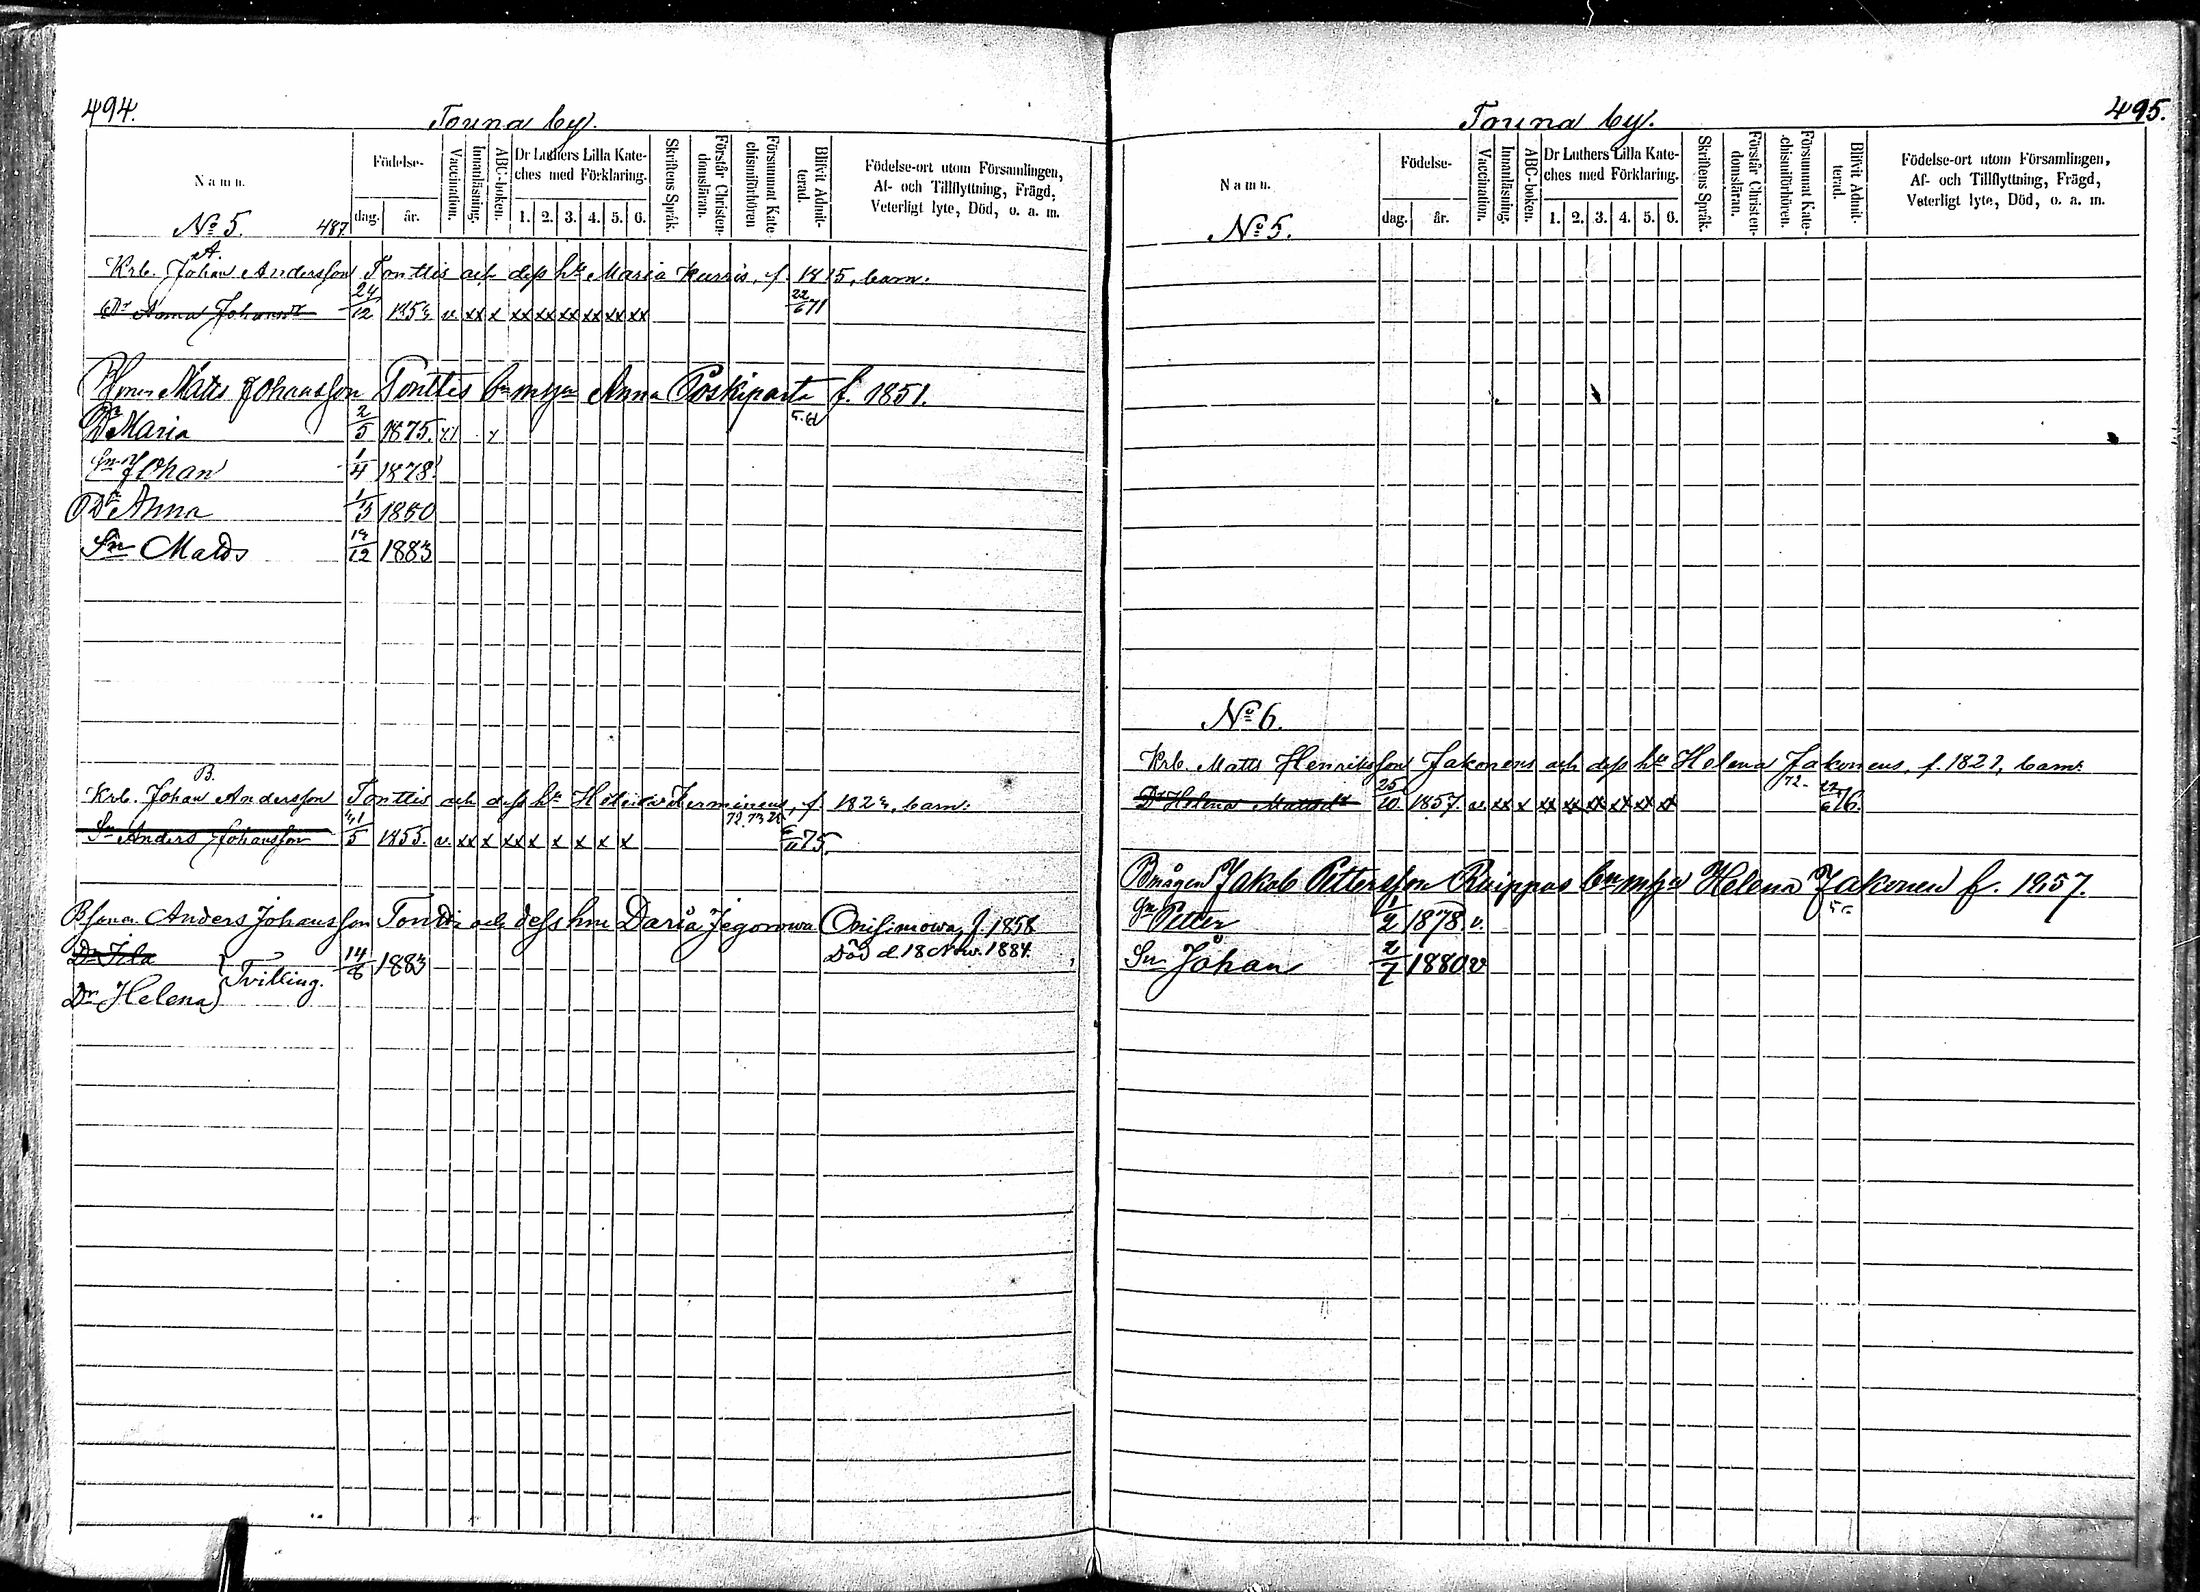 494.
Touna by.
Namn.
Födelse-
dag.
år.
Vaccination.
Innanläsning.
ABC-boken.
Dr Luthers Lilla Kate-
ches med Förklaring.
1. 2. 3. 4. 5. 6.
Skriftens Språk.
Förstår Christen-
domsläran.
Försummat Kate-
chismiförhören
Blifvit Admit-
terad.
Födelse-ort utom Församlingen,
Af- och Tillflyttning, Frägd,
Veterligt lyte, Död, o. a. m.
No 5. 487.
A.
Krb. Johan Andersson Tonttis och dess h. Maria Kurris, f. 1815, barn:
Dr Anna Johansdr 24/12 1853 v. xx x xx xx xx xx xx xx 22/6 71
Bsonen Matts Johansson Tonttis hn mgn Anna Poskiparta f. 1851.
Dr Maria 2/5 1875.
Sn Johan 1/4 1878
Dr Anna 1/3 1880
Sn Matds 13/12 1883
B.
Krb. Johan Andersson Tonttis och dess h. Helena Terminens, f. 1823, barn:
Sn Anders Johansson 31/5 1855. v. xx x xx x x x x x 75.
Bsonen Anders Johansson Tondi och dess hru Daria Jegorowa Onisimowa, f. 1858
14/8 1883 Död d 18 Nov. 1884.
Dr Helena } Tvilling.
495.
Touna by.
Namn.
Födelse-
dag.
år.
Vaccination.
Innanläsning.
ABC-boken.
Dr Luthers Lilla Kate-
ches med Förklaring.
1. 2. 3. 4. 5. 6.
Skriftens Språk.
Förstår Christen-
domsläran.
Försummat Kate-
chismiförhören.
Blifvit Admit-
terad.
Födelse-ort utom Församlingen,
Af- och Tillflyttning, Frägd,
Veterligt lyte, Död, o. a. m.
No 5.
No 6.
Krb. Matts Henriksson Jakonens och dess h. Helena Jakonens, f. 1821, barn:
Dr Helena Mattsdr 25/10 1857. v. xx x xx xx xx xx xx xx 72. 76.
Bmågen Jakob Pettersson Ruippas hn mgn Helena Jakonen f. 1857.
Sn Petter 1/2 1878 v.
Sn Johan 2/7 1880 v